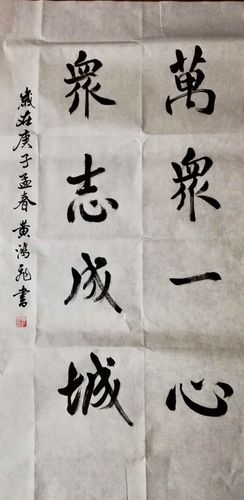 萬眾一心
眾志成城
歲在庚子孟春黄鴻飛書